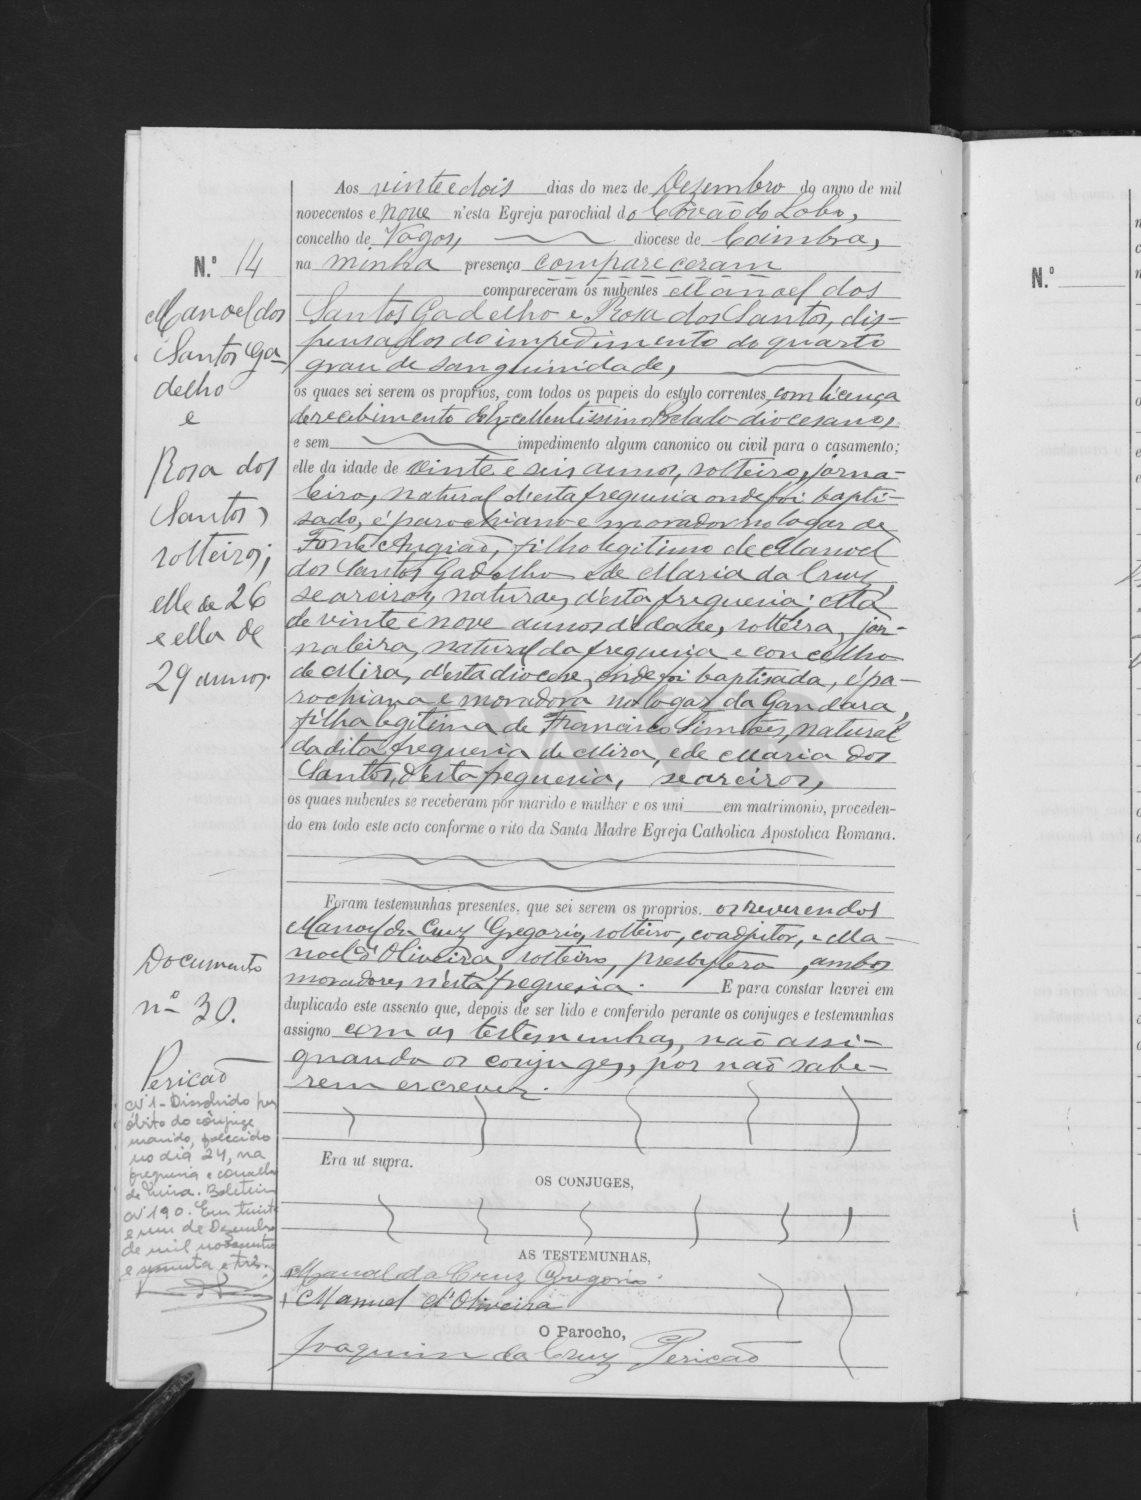 Aos vinte e dois dias do mez de Dezembro do anno de mil
novecentos e nove n'esta Egreja parochial do Côvão do Lobo,
concelho de Vagos, diocese de Coimbra,
na minha presença compareceram
compareceram os nubentes Manoel dos
Santos Gadelho e Rosa dos Santos, dis-
pensados do impedimento do quarto
grau de sanguinidade,
os quaes sei serem os proprios, com todos os papeis do estylo correntes, com licença
de recebimento do Excellentissimo Prelado diocesano,
e sem impedimento algum canonico ou civil para o casamento;
elle da idade de vinte e seis annos, solteiro, jorna-
leiro, natural d'esta freguesia onde foi bapti-
sado, é parochiano e morador no logar de
Fonte Angião, filho legitimo de Manoel
dos Santos Gadelho e de Maria da Cruz,
seareiros, naturaes d'esta freguesia; ella
de vinte e nove annos d'idade, solteira, jor-
naleira, natural da freguesia e concelho
de Mira, d'esta diocese, onde foi baptisada, é pa-
rochiana e moradora no logar da Gandara,
filha legitima de Francisco Simões, natural
da dita freguesia de Mira, e de Maria dos
Santos, d'esta freguesia, seareiros,
os quaes nubentes se receberam por marido e mulher e os uni em matrimonio, proceden-
do em todo este acto conforme o rito da Santa Madre Egreja Catholica Apostolica Romana.
Foram testemunhas presentes, que sei serem os proprios, os reverendos
Manoel da Cruz Gregorio, solteiro, coadjutor, e Ma-
noel d'Oliveira, solteiro, presbytero, ambos
moradores n'esta freguesia. E para constar lavrei em
duplicado este assento que, depois de ser lido e conferido perante os conjuges e testemunhas
assigno com as testemunhas, não assi-
gnando os conjuges, por não sabe-
rem escrever.
Era ut supra.
OS CONJUGES,
AS TESTEMUNHAS,
Manoel da Cruz Gregorio
Manuel d'Oliveira
O Parocho,
Joaquim da Cruz Pericão
N.º 14
Manoel dos
Santos Ga-
delho
e
Rosa dos
Santos,
solteiros;
elle de 26
e ella de
29 annos.
Documento
nº 30.
Pericão
Nº 1 - Dissolvido por
óbito do cônjuge
marido, falecido
no dia 24, na
freguesia e concelho
de Mira. Boletim
Nº 190. Em trinta
e um de Dezembro
de mil novecentos
e sessenta e três.
N.º